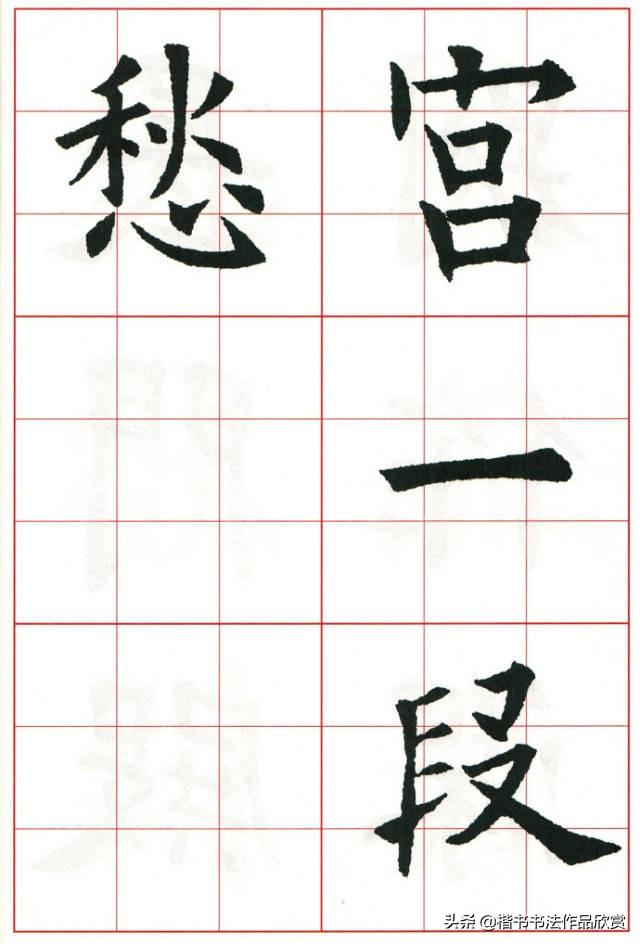 宫一段
愁
头条 @楷书书法作品欣赏